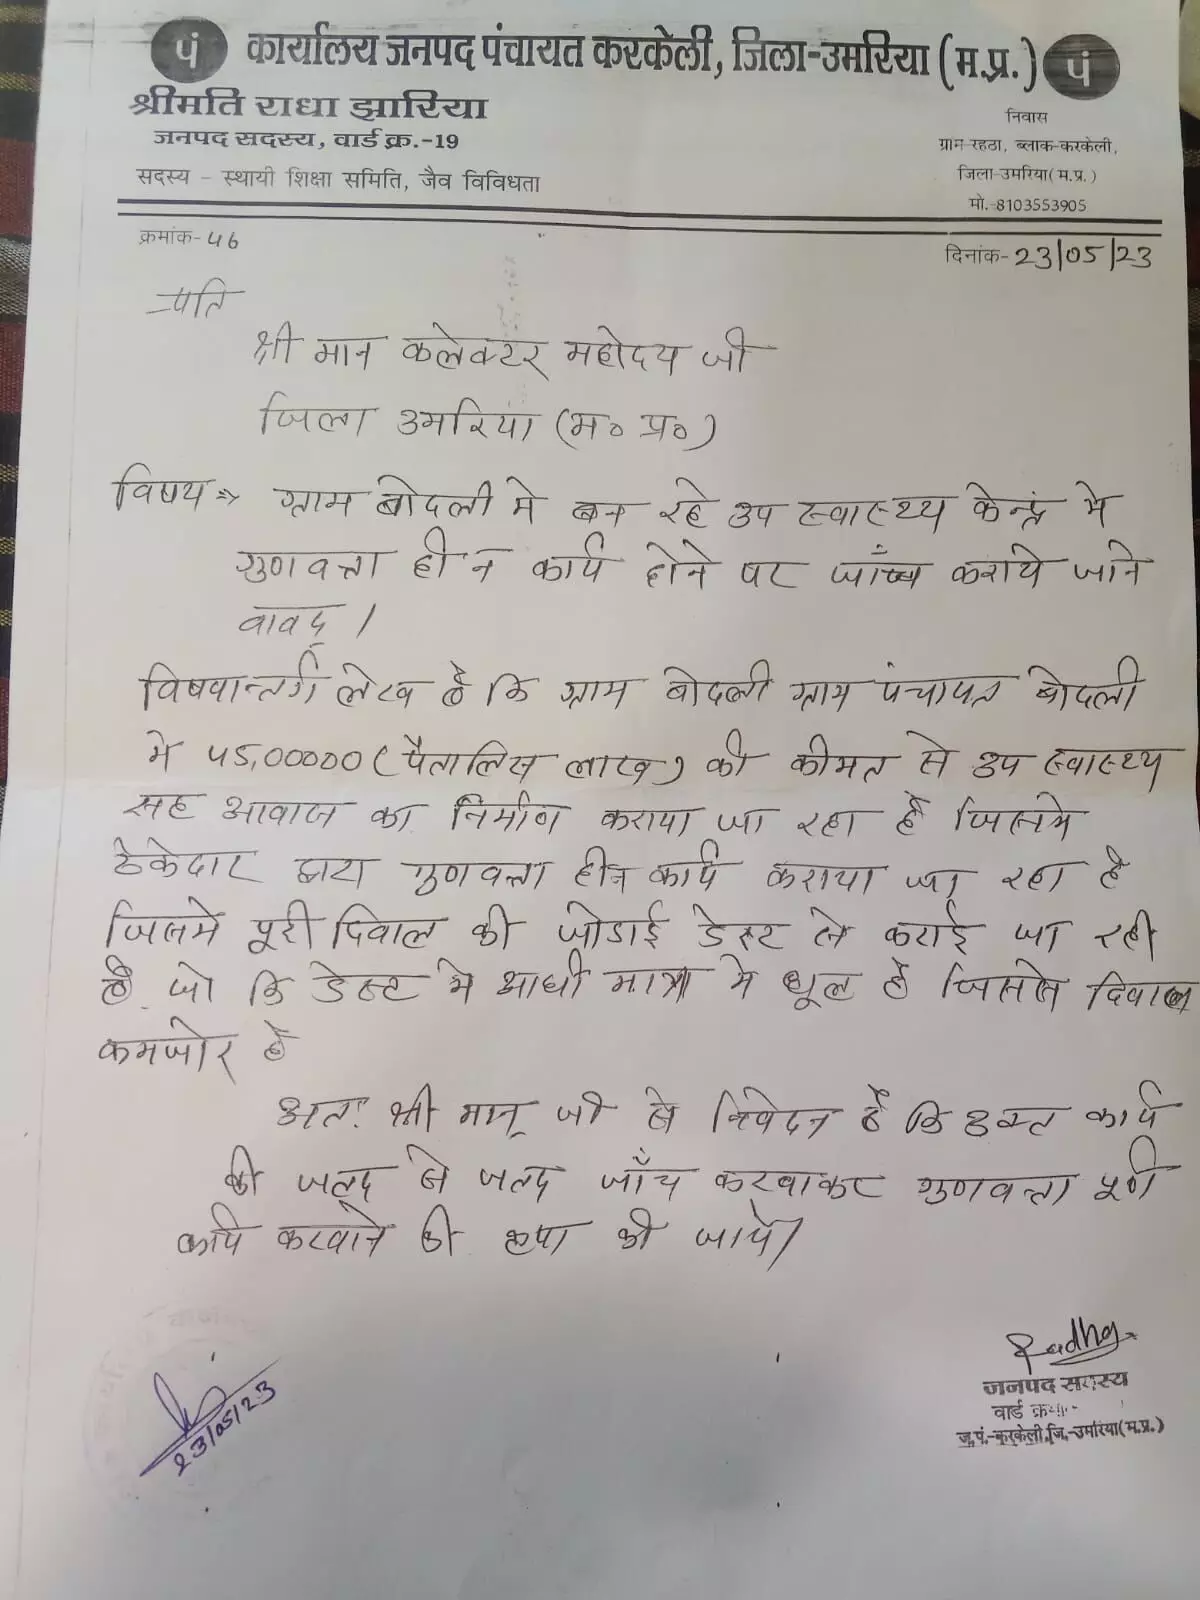 पं कार्यालय जनपद पंचायत करकेली, जिला-उमरिया (म.प्र.) पं
श्रीमति राधा झारिया
जनपद सदस्य, वार्ड क्र.-19
सदस्य – स्थायी शिक्षा समिति, जैव विविधता
निवास
ग्राम-रहठा, ब्लाक-करकेली,
जिला-उमरिया(म.प्र.)
मो.-8103553905
क्रमांक- 46
दिनांक- 23/05/23
प्रति
श्री मान कलेक्टर महोदय जी
जिला उमरिया (म० प्र०)
विषय ⇒ ग्राम बोदली मे बन रहे उप स्वास्थ्य केन्द्र मे
गुणवत्ता हीन कार्य होने पर जाँच कराये जाने
वावद् ।
विषयान्तर्ग लेख है कि ग्राम बोदली ग्राम पंचायत बोदली
मे 45,00000 (पैतालिस लाख) की कीमत से उप स्वास्थ्य
सह आवास का निर्माण कराया जा रहा है जिसमे
ठेकेदार द्वारा गुणवत्ता हीन कार्य कराया जा रहा है
जिसमे पूरी दिवाल की जोडाई डेस्ट से कराई जा रही
है जो कि डेस्ट मे आधी मात्रा मे धूल है जिससे दिवाल
कमजोर है
अतः श्री मान् जी से निवेदन है कि उक्त कार्य
की जल्द से जल्द जाँच करवाकर गुणवत्ता पूर्ण
कार्य करवाने की कृपा की जाये।
Radha
जनपद सदस्य
वार्ड
ज.पं.-करकेली,जि.-उमरिया(म.प्र.)
23/05/23